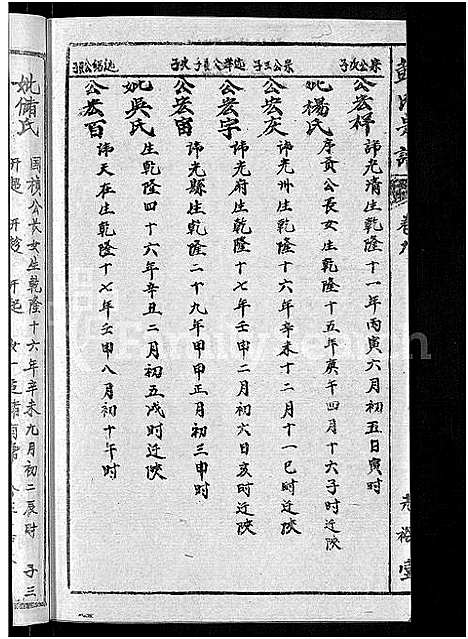 彭氏宗譜 卷九
榮公次子
公宏檡 諱光清生乾隆十一年丙寅六月初五日寅时
妣楊氏 序貢公長女生乾隆十五年庚午四月十六子时迁陕
榮公三子
公宏庆 諱光州生乾隆十六年辛未十二月十一巳时迁陕
公宏宇 諱光府生乾隆十七年壬申二月初六日亥时迁陕
公宏富 諱光縣生乾隆二十九年甲申正月初三申时
妣吳氏 生乾隆四十六年辛丑二月初五戌时迁陕
公宏百 諱天在生乾隆十七年壬申八月初十午时
妣储氏 国楨公長女生乾隆十六年辛未九月初二辰时 子三
FamilySearch